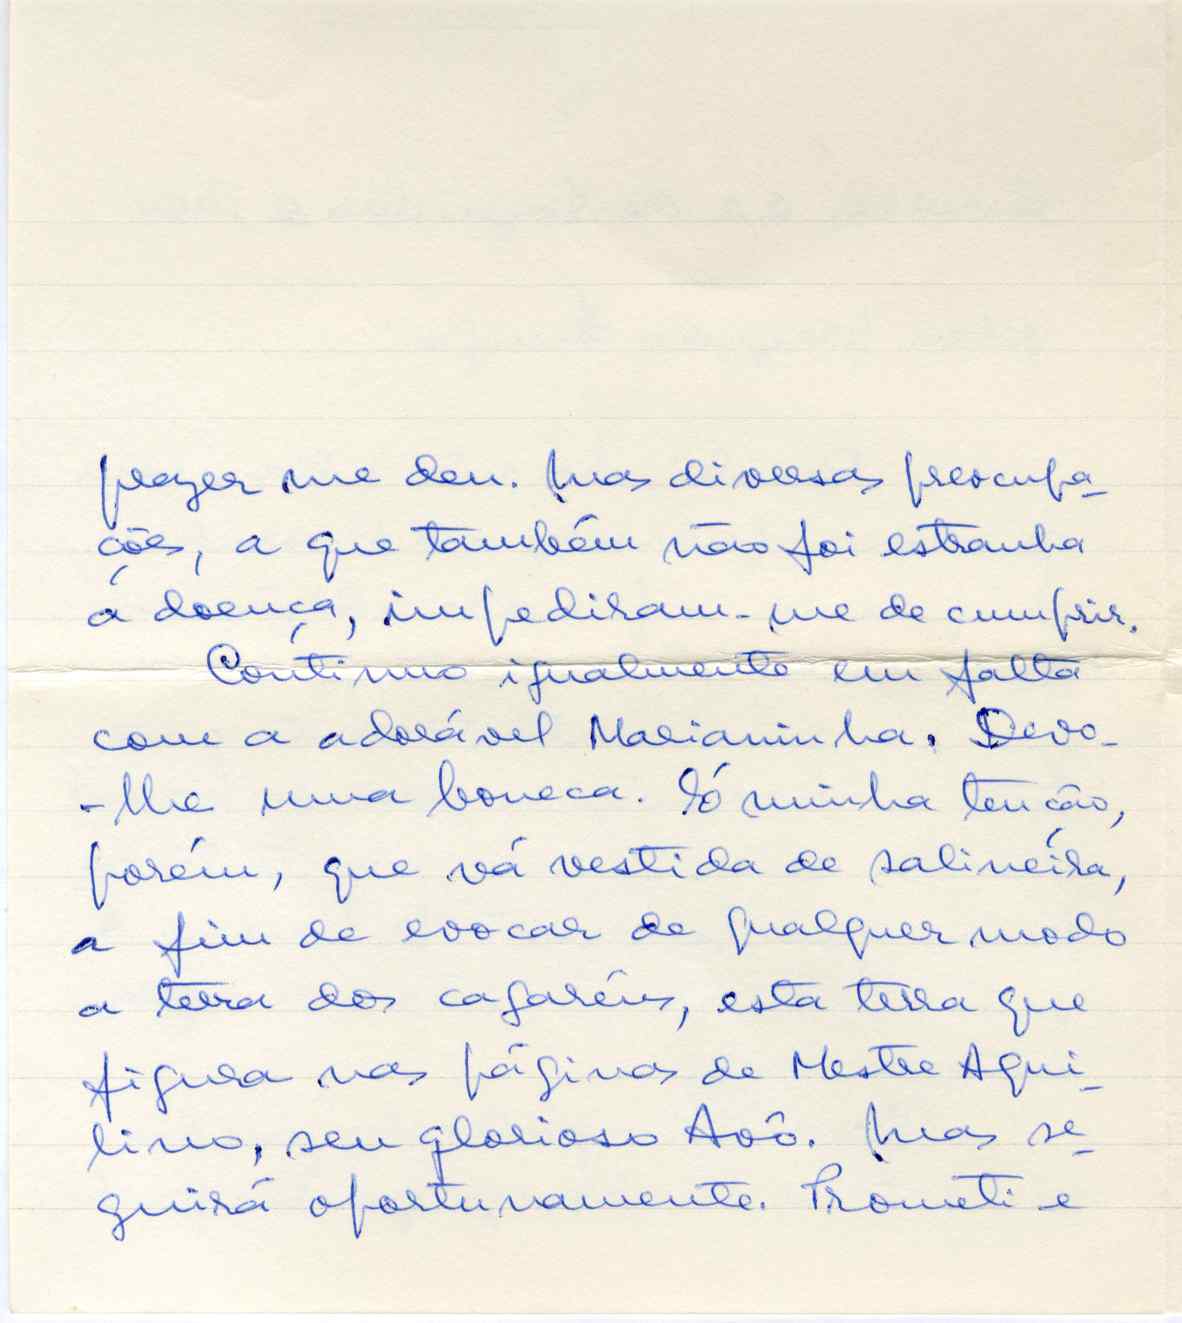 prazer me deu. Mas diversas preocupa-
ções, a que também não foi estranha
a doença, impediram-me de cumprir.
Continuo igualmente em falta
com a adorável Marianinha. Devo-
-lhe uma boneca. É minha tenção,
porém, que vá vestida de salineira,
a fim de evocar de qualquer modo
a terra dos cagaréus, esta terra que
figura nas páginas de Mestre Aqui-
lino, seu glorioso Avô. Mas se-
guirá oportunamente. Prometi e